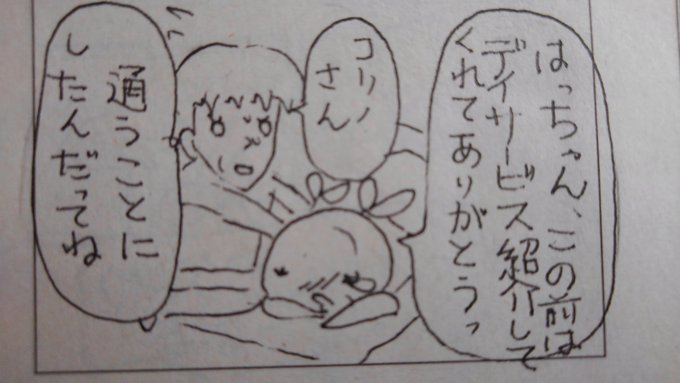 はっちゃん、この前は
デイサービス紹介して
くれてありがとうっ
コリノ
さん
通うことに
したんだってね